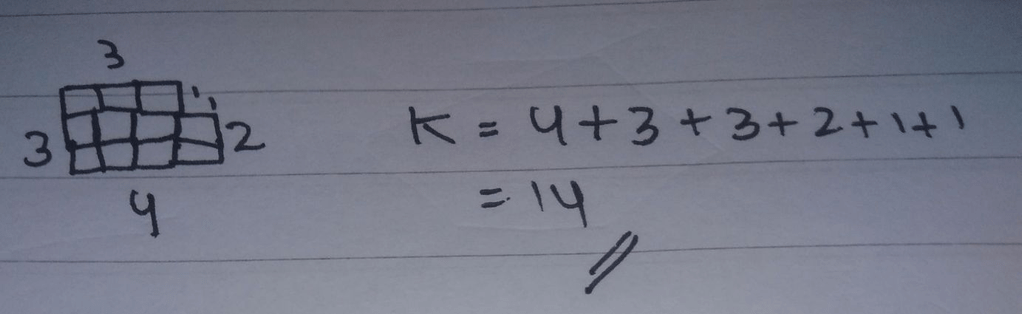 3
1 1
3 2
K = 4 + 3 + 3 + 2 + 1 + 1
4
= 14